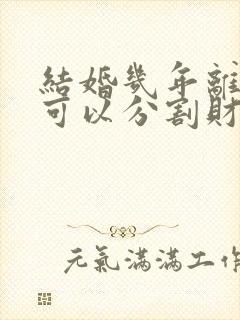 結婚幾年離
可以分割財
元氣滿滿工作